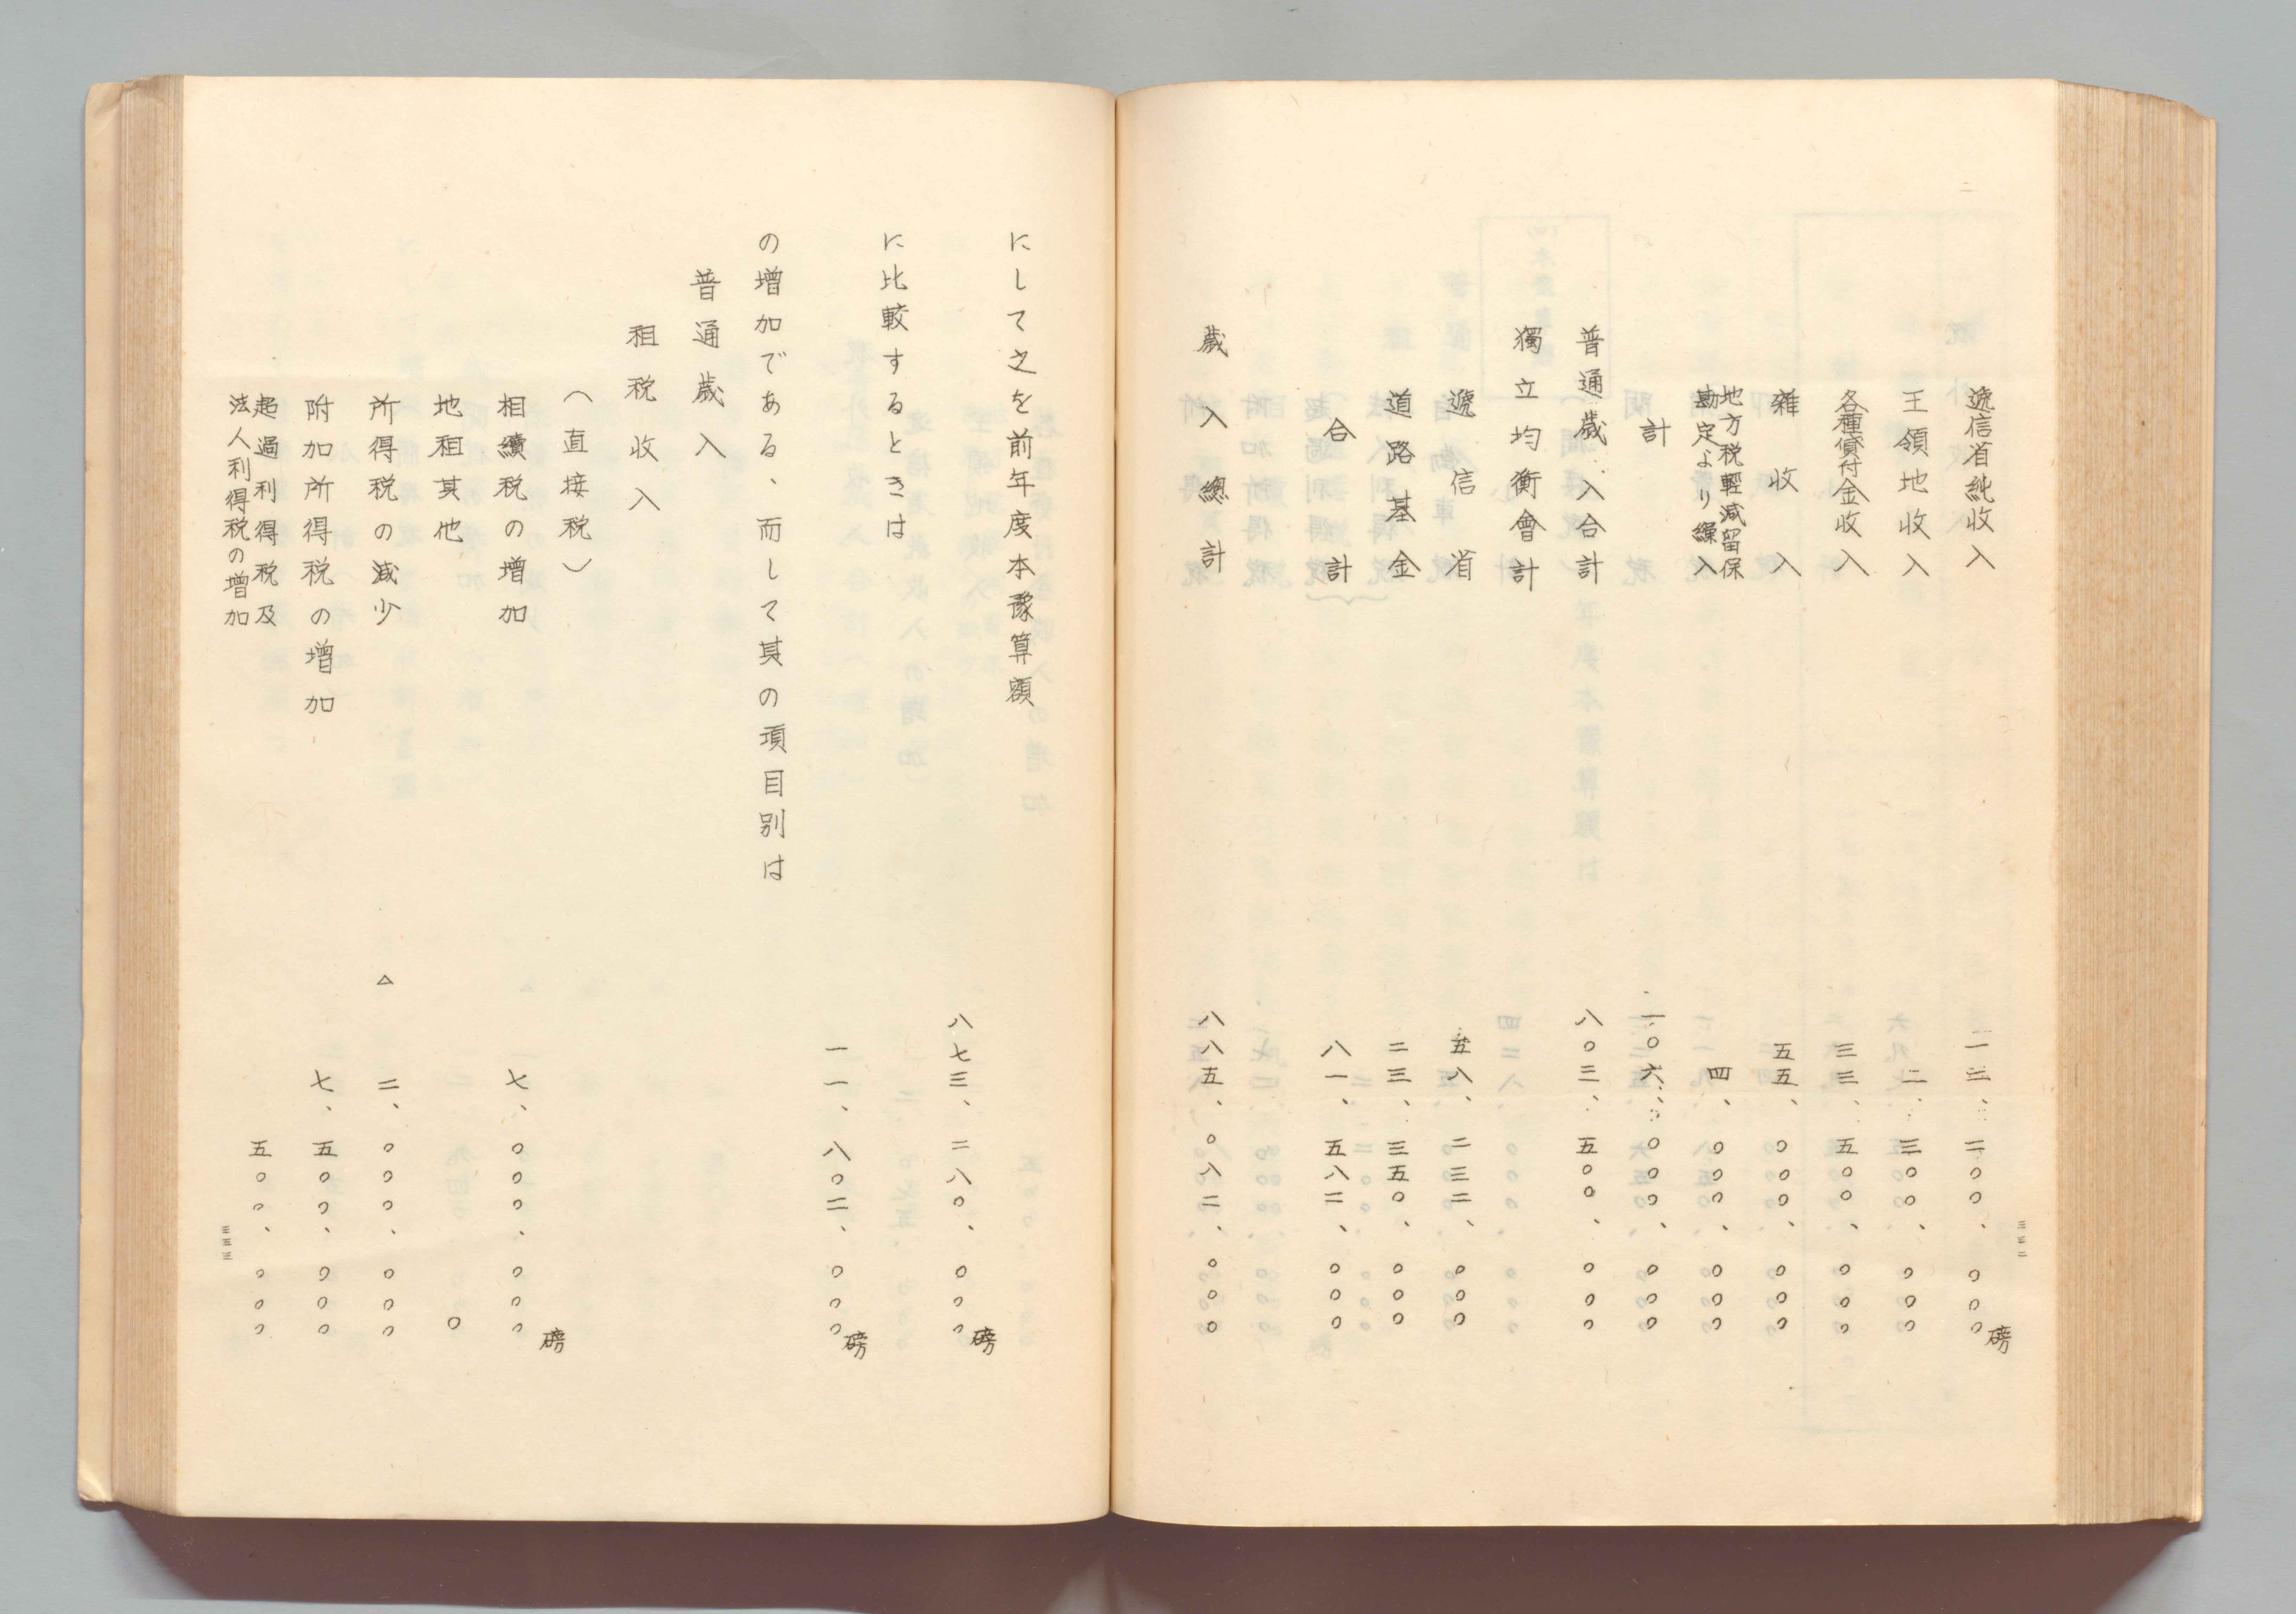 三三二
遞信省純收入 一一、二〇〇、〇〇〇磅
王領地收入 二、三〇〇、〇〇〇
各種貸付金收入 三三、五〇〇、〇〇〇
雜收入 五五、〇〇〇、〇〇〇
地方税輕減留保
勘定より繰入 四、〇〇〇、〇〇〇
計 一〇六、〇〇〇、〇〇〇
普通歲入合計 八〇三、五〇〇、〇〇〇
獨立均衡會計
遞信省 五八、二三二、〇〇〇
道路基金 二三、三五〇、〇〇〇
合計 八一、五八二、〇〇〇
歲入總計 八八五、〇八二、〇〇〇
八七三、二八〇、〇〇〇磅
にして之を前年度本豫算額
八七三、二八〇、〇〇〇磅
に比較するときは
一一、八〇二、〇〇〇磅
の増加である、而して其の項目別は
普通歲入
租税收入
（直接税）
相續税の増加 七、〇〇〇、〇〇〇磅
地租其他 〇
所得税の減少 △ 二、〇〇〇、〇〇〇
附加所得税の増加 七、五〇〇、〇〇〇
超過利得税及
法人利得税の増加 五〇〇、〇〇〇
三三三